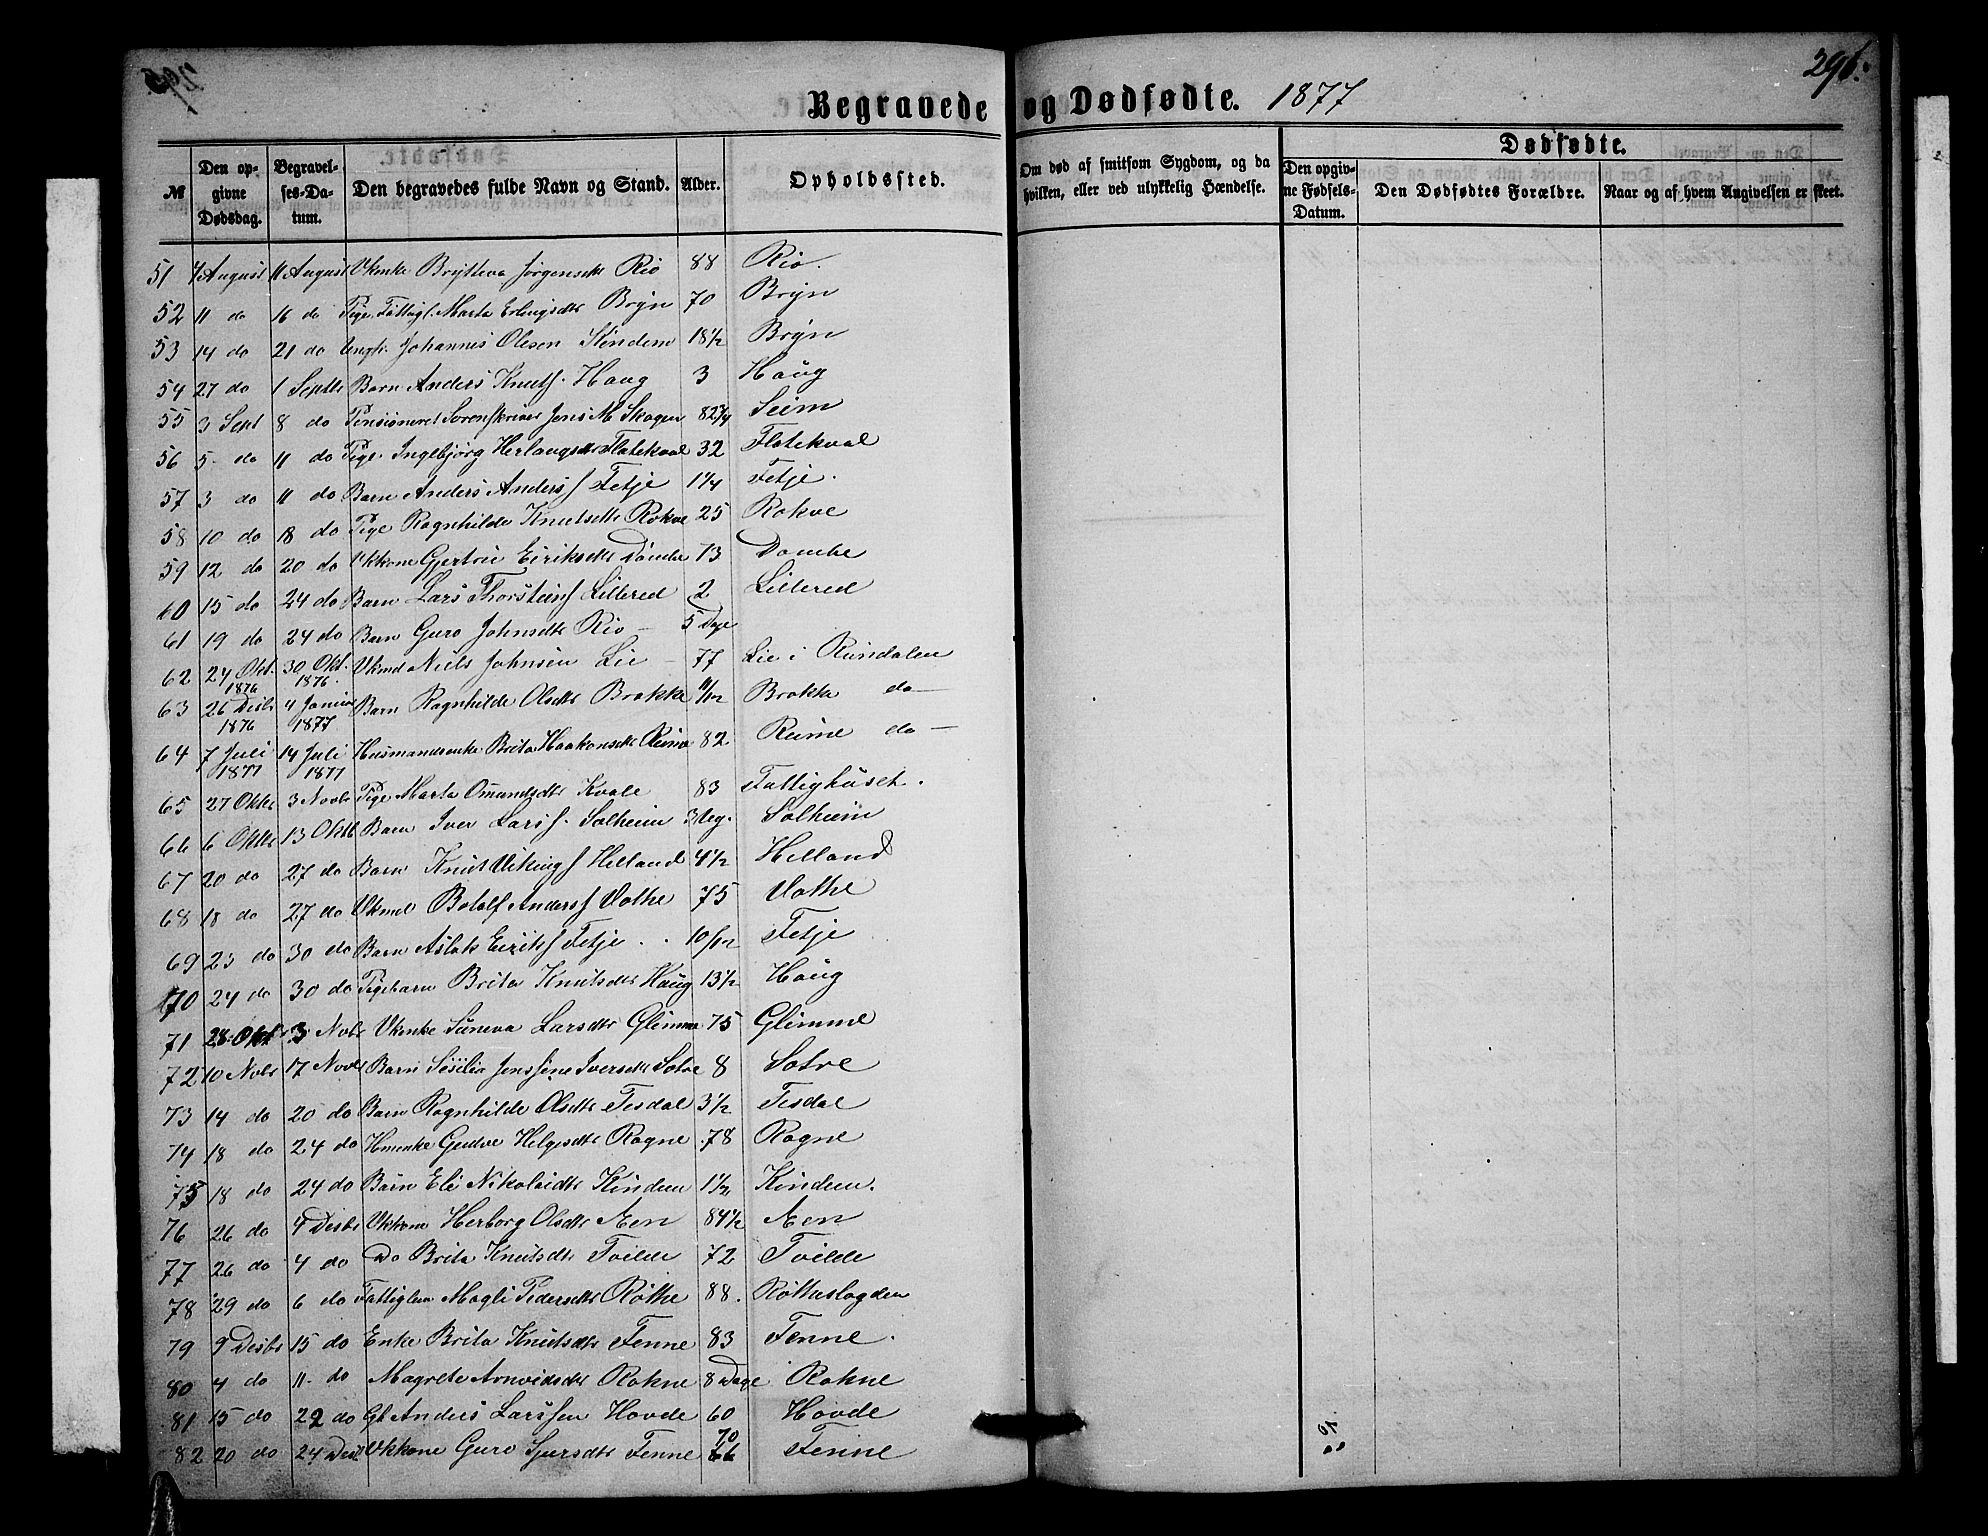 296.
Begravede og Dødfødte. 1877
Dødfødte.
№ Den opgivne Dødsdag. Begravelses-Datum. Den begravedes fulde Navn og Stand. Alder. Opholdssted. Om død af smitsom Sygdom, og da hvilken, eller ved ulykkelig Hændelse. Den opgivne Fødsels-Datum. Den Dødfødtes Forældre. Naar og af hvem Angivelsen er skeet.
51 4 August 11 August Vkenke Brytteva Jørgensdtr Rio 88 Rio.
52 11 do 16 do Pige, Fattigl. Marta Erlingsdtr Bryn 70 Bryn
53 14 do 21 do Ungk. Johannes Olesen Kindem 18½ Bryn
54 27 do 1 Septbr Barn Anders Knuts. Haug 3 Haug
55 3 Sept 8 do Pensioneret Sorenskriver Jens M Skogen 82¾ Seim
56 5 do 11 do Pige Ingebjørg Herlaugsdtr Flatekval 32 Flatekval
57 3 do 11 do Barn Anders Anders f Fetje 1¼ Fetje.
58 10 do 18 do Pige Ragnhilde Knutsdtr Rokne 25 Rokne
59 12 do 20 do Vkkone Gjertrü Eiriksdtr Dömbe 73 Dombe
60 15 do 24 do Barn Lars Thorsteins f Lillered 2 Lillered
61 19 do 24 do Barn Guro Johnsdtr Rio 5 Dage
62 24 Okt. 1876 30 Okt. 1876. Vkmd Niels Johnsen Lie 77 Lie i Rundalen
63 26 Desbr 1876 4 Januar 1877 Barn Ragnhilde Olsdtr Brekke 11/12 Brekke do
64 7 Juli 1877 14 Juli 1877 Husmandsenke Brita Haakonsdtr Reime 82 Reime do
65 27 Oktbr 3 Novbr Pige Marta Omundsdtr Kvale 83 Fattighuset.
66 6 Oktbr 13 Oktb Barn Iver Lars f. Solheim 3 Ug. Solheim
67 20 do 27 do Barn Knut Vikings f Helland 4½ Helland
68 18 do 27 do Vkmd Botolf Anders f Væthe 75 Væthe
69 23 do 30 do Barn Aslak Eiriks f Fetje 10/12 Fetje
70 24 do 30 do Pigebarn Brita Knutsdtr Haug 13½ Haug
71 28 Okt 3 Nvbr Vkenke Süneva Larsdtr Glimme 75 Glimme
72 10 Nvbr 17 Novbr Barn Sesilia Jensine Iversdtr Sotre 8 Sotve
73 14 do 20 do Barn Ragnhilde Olsdtr Tesdal 3½ Tesdal
74 18 do 24 do Hmenke Gudve Helgesdtr Rogne 78 Rogne
75 18 do 24 do Barn Eli Nikolaidtr Kindem 1½ Kindem.
76 26 do 4 Desbr Vkkone Herborg Olsdtr Æen 84½ Æen
77 26 do 4 do Do Brita Knutsdtr Tvilde 72 Tvilde
78 29 do 6 do Fattiglem Magli Pedersdtr Röthe 88. Röthuslagden
79 9 Desbr 15 do Enke Brita Knutsdtr Fenne 83 Fenne.
80 4 do 11 do Magrete Arnvidsdtr Rokne 8 Dage Rokne
81 15 do 22 do Gk Anders Larssen Hovde 60 Hovde
82 20 do 24 Des. Vkkone Guro Sjursdtr Fenne 70 Fenne